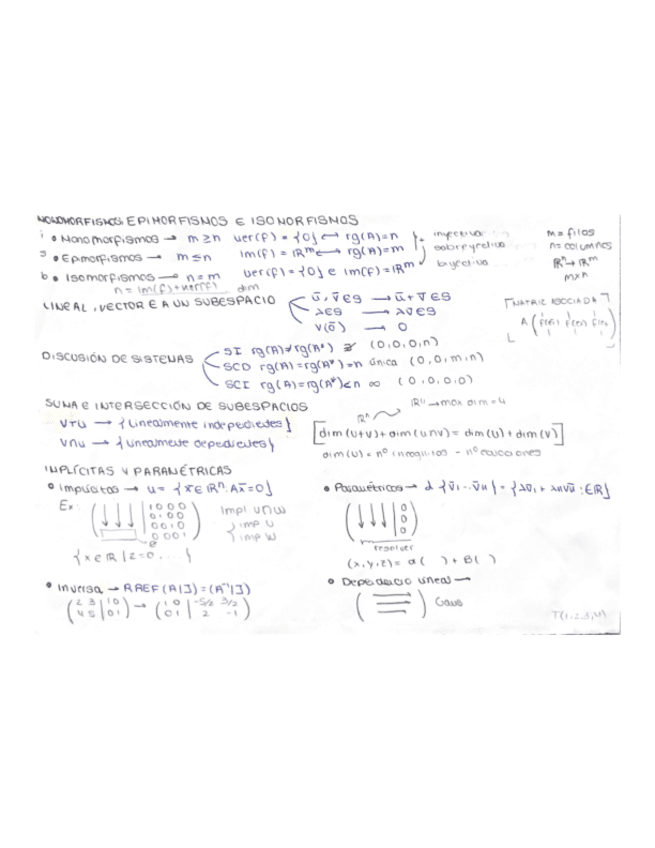 MONOMORFISMOS, EPIMORFISMOS E ISOMORFISMOS
• Monomorfismos → m ≥ n ver(f) = {0} ↔ rg(A)=n inyectiva
• Epimorfismos → m ≤ n Im(f) = IRᵐ ↔ rg(A)=m sobreyectiva
• Isomorfismos → n = m ver(f)={0} e Im(f)=IRᵐ biyectiva
n = Im(f)+ver(f) dim
m = filas
n = columnas
IRⁿ → IRᵐ
m×n
LINEAL, VECTOR E A UN SUBESPACIO
ū, v̄ ∈ S → ū + v̄ ∈ S
λ ∈ S → λv ∈ S
V(ō) → 0
MATRIZ ASOCIADA
DISCUSIÓN DE SISTEMAS
SI rg(A)≠rg(A*) ∄ (0,0,0,n)
SCD rg(A)=rg(A*)=n única (0,0,m,n)
SCI rg(A)=rg(A*)<n ∞ (0,0,0,0)
SUMA E INTERSECCIÓN DE SUBESPACIOS
V+U → {Linealmente independientes}
V∩U → {Linealmente dependientes}
IR⁴ → max dim = 4
IRⁿ
[dim(U+V)+dim(U∩V) = dim(U)+dim(V)]
dim(U) = nº incógnitas - nº ecuaciones
IMPLÍCITAS Y PARAMÉTRICAS
• Implícitas → U = {x̄ ∈ IRⁿ: Ax̄=0}
Ex:
1 0 0 0
0 1 0 0
0 0 1 0
0 0 0 1
Impl U∩W
{imp U
{imp W
{x ∈ IR | z=0 ... }
• Paramétricas →
0
0
0
resolver
(x,y,z) = α( ) + B( )
• Inversa → RREF (A|I) = (A⁻¹|I)
(2 3 | 1 0) → (1 0 | -5/2 3/2)
(4 5 | 0 1) (0 1 | 2 -1)
• Dependencia lineal →
Gaus
T(1,2,3,4)